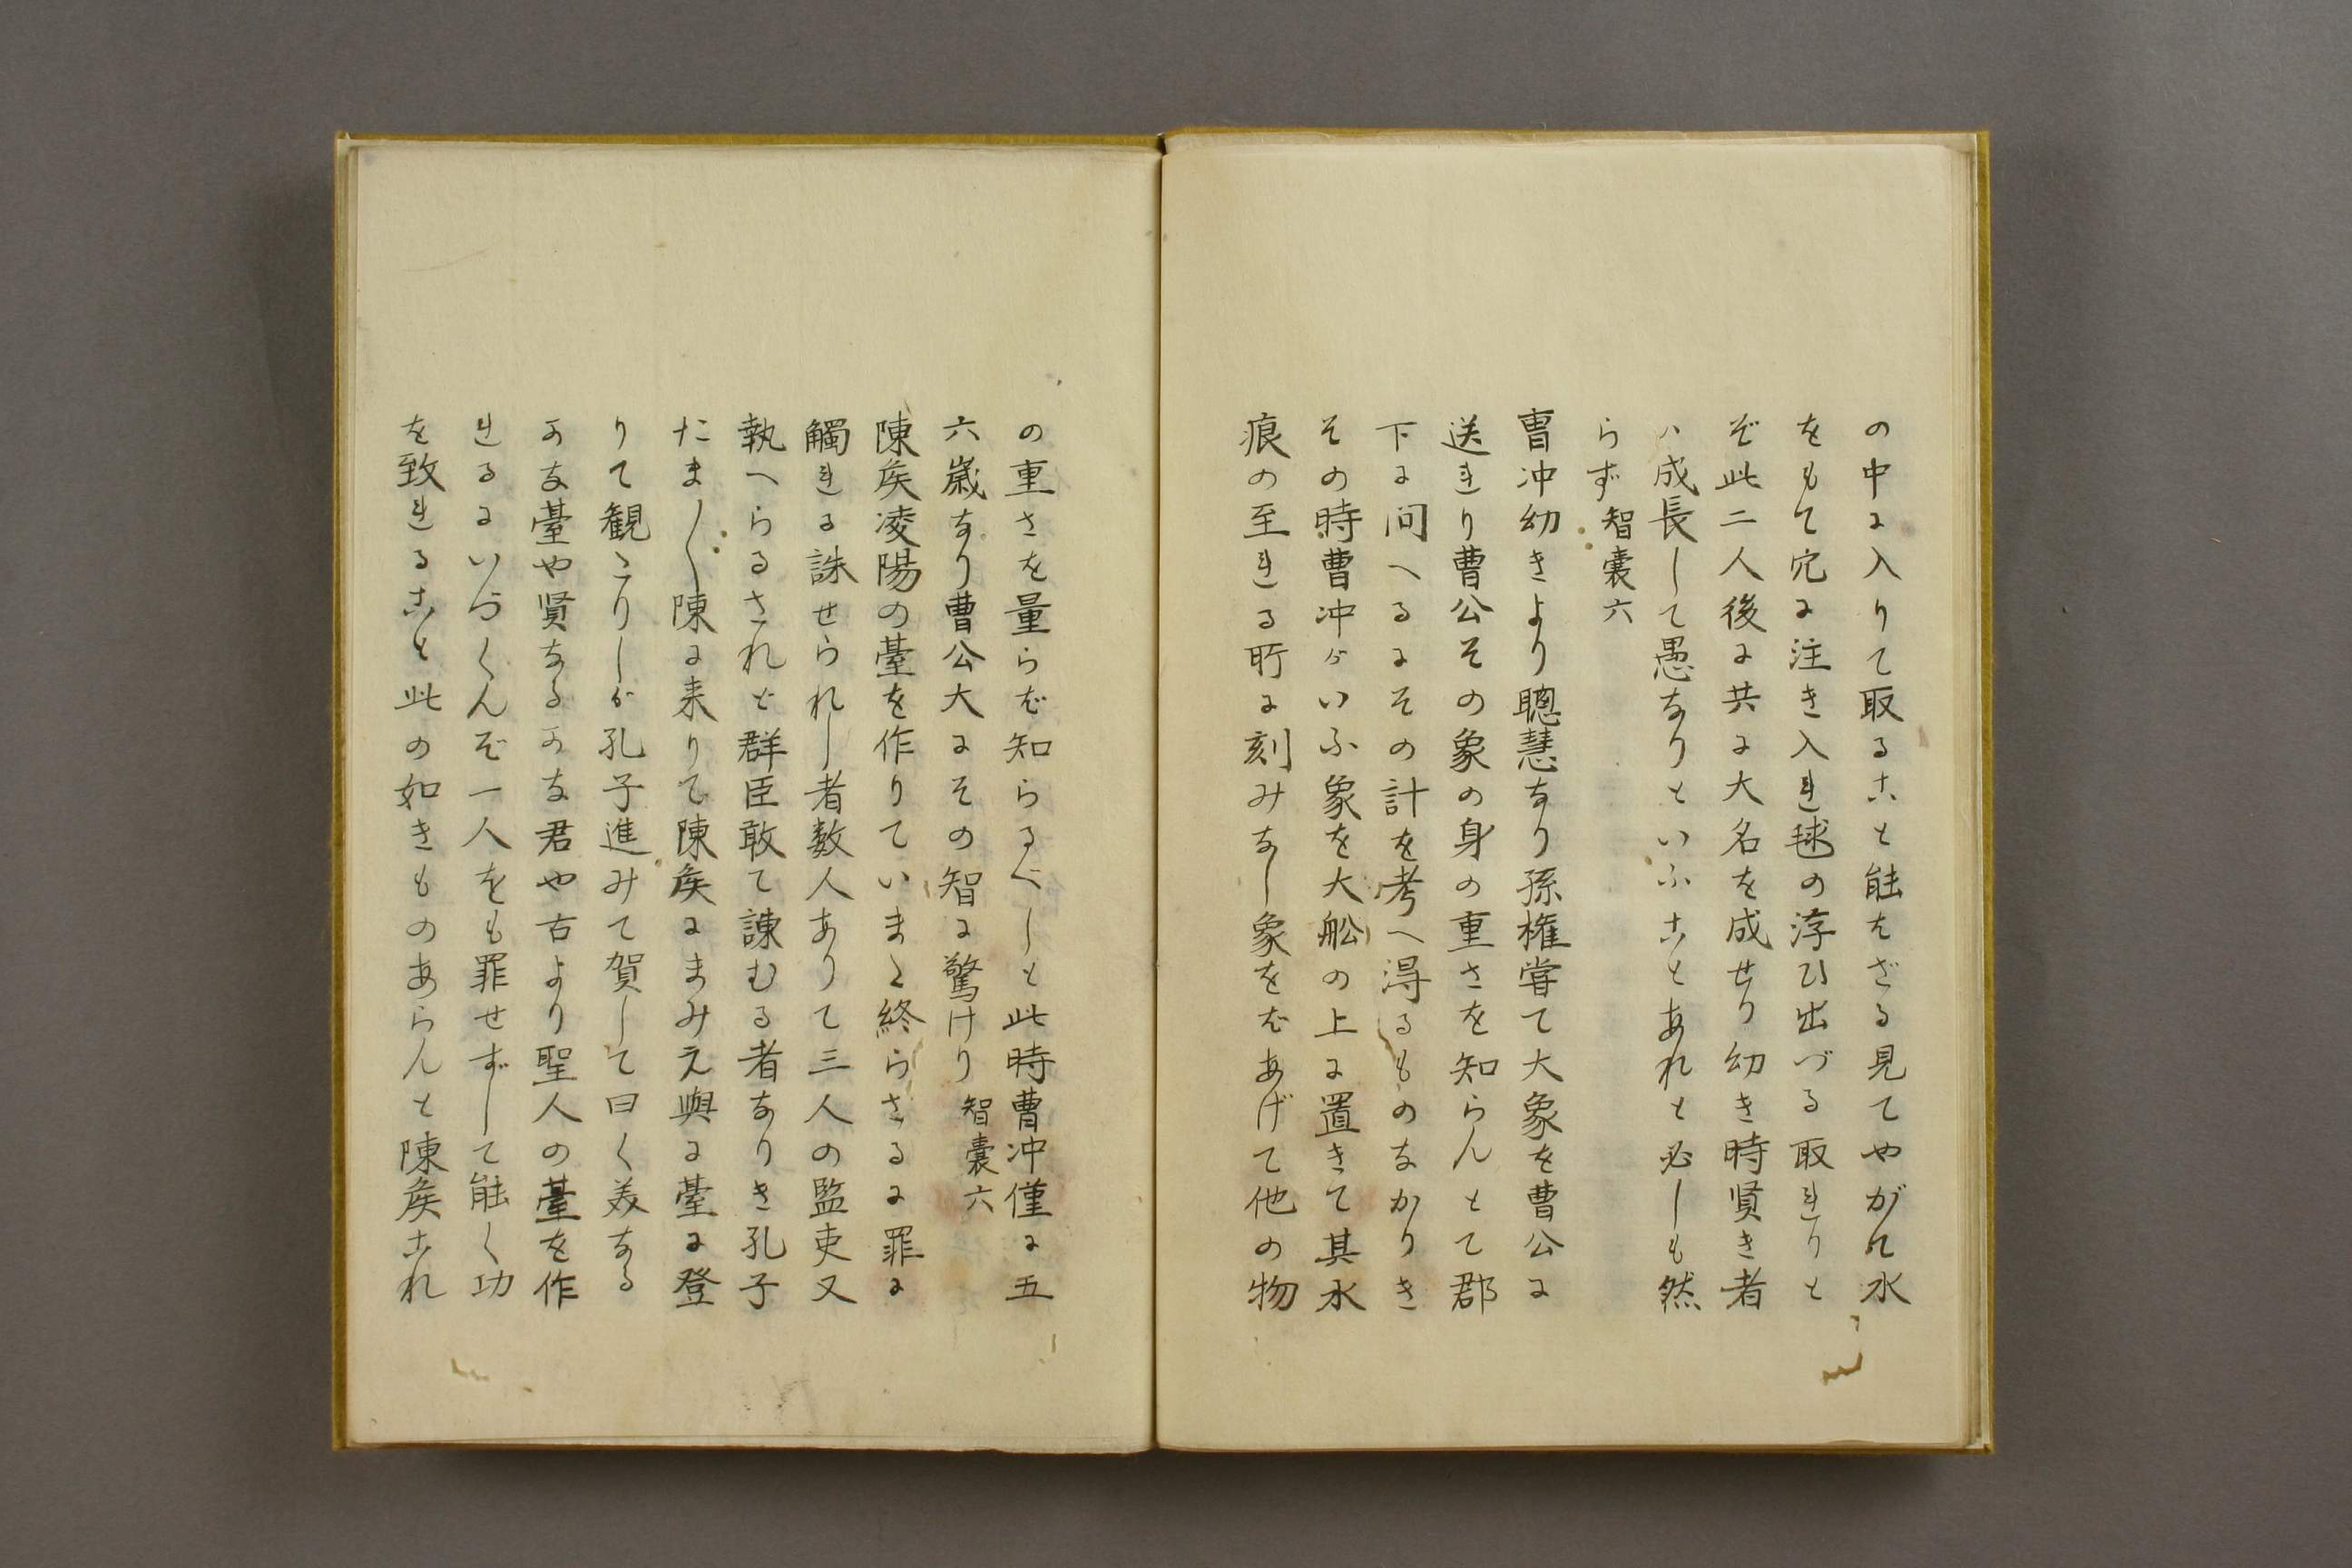 の中に入りて取ること能はざる見てやがて水
をもて穴に注き入れ毬の浮ひ出づる取れりと
ぞ此二人後に共に大名を成せり幼き時賢き者
ハ成長して愚なりといふことあれと必しも然
らず 智囊六
曹冲幼きより聰慧なり孫権嘗て大象を曹公に
送れり曹公その象の身の重さを知らんとて郡
下に问へるにその計を考へ得るものなかりき
その時曹冲がいふ象を大舩の上に置きて其水
痕の至れる所に刻みなし象をばあげて他の物
の重さを量らば知らるべしと此時曹冲僅に五
六歳なり曹公大にその智に驚けり 智囊六
陳矦凌陽の臺を作りていまた終らさるに罪に
觸れる誅せられし者数人ありて三人の監吏又
執へらるされど群臣敢て諫むる者なりき孔子
たま〳〵陳に来りて陳矦にまみえ與に臺に登
りて観こりしが孔子進みて賀して曰く美なる
かな臺や賢なるかな君や古より聖人の臺を作
れるにいづくんぞ一人をも罪せずして能く功
を致れること此の如きものあらんと陳矦これ